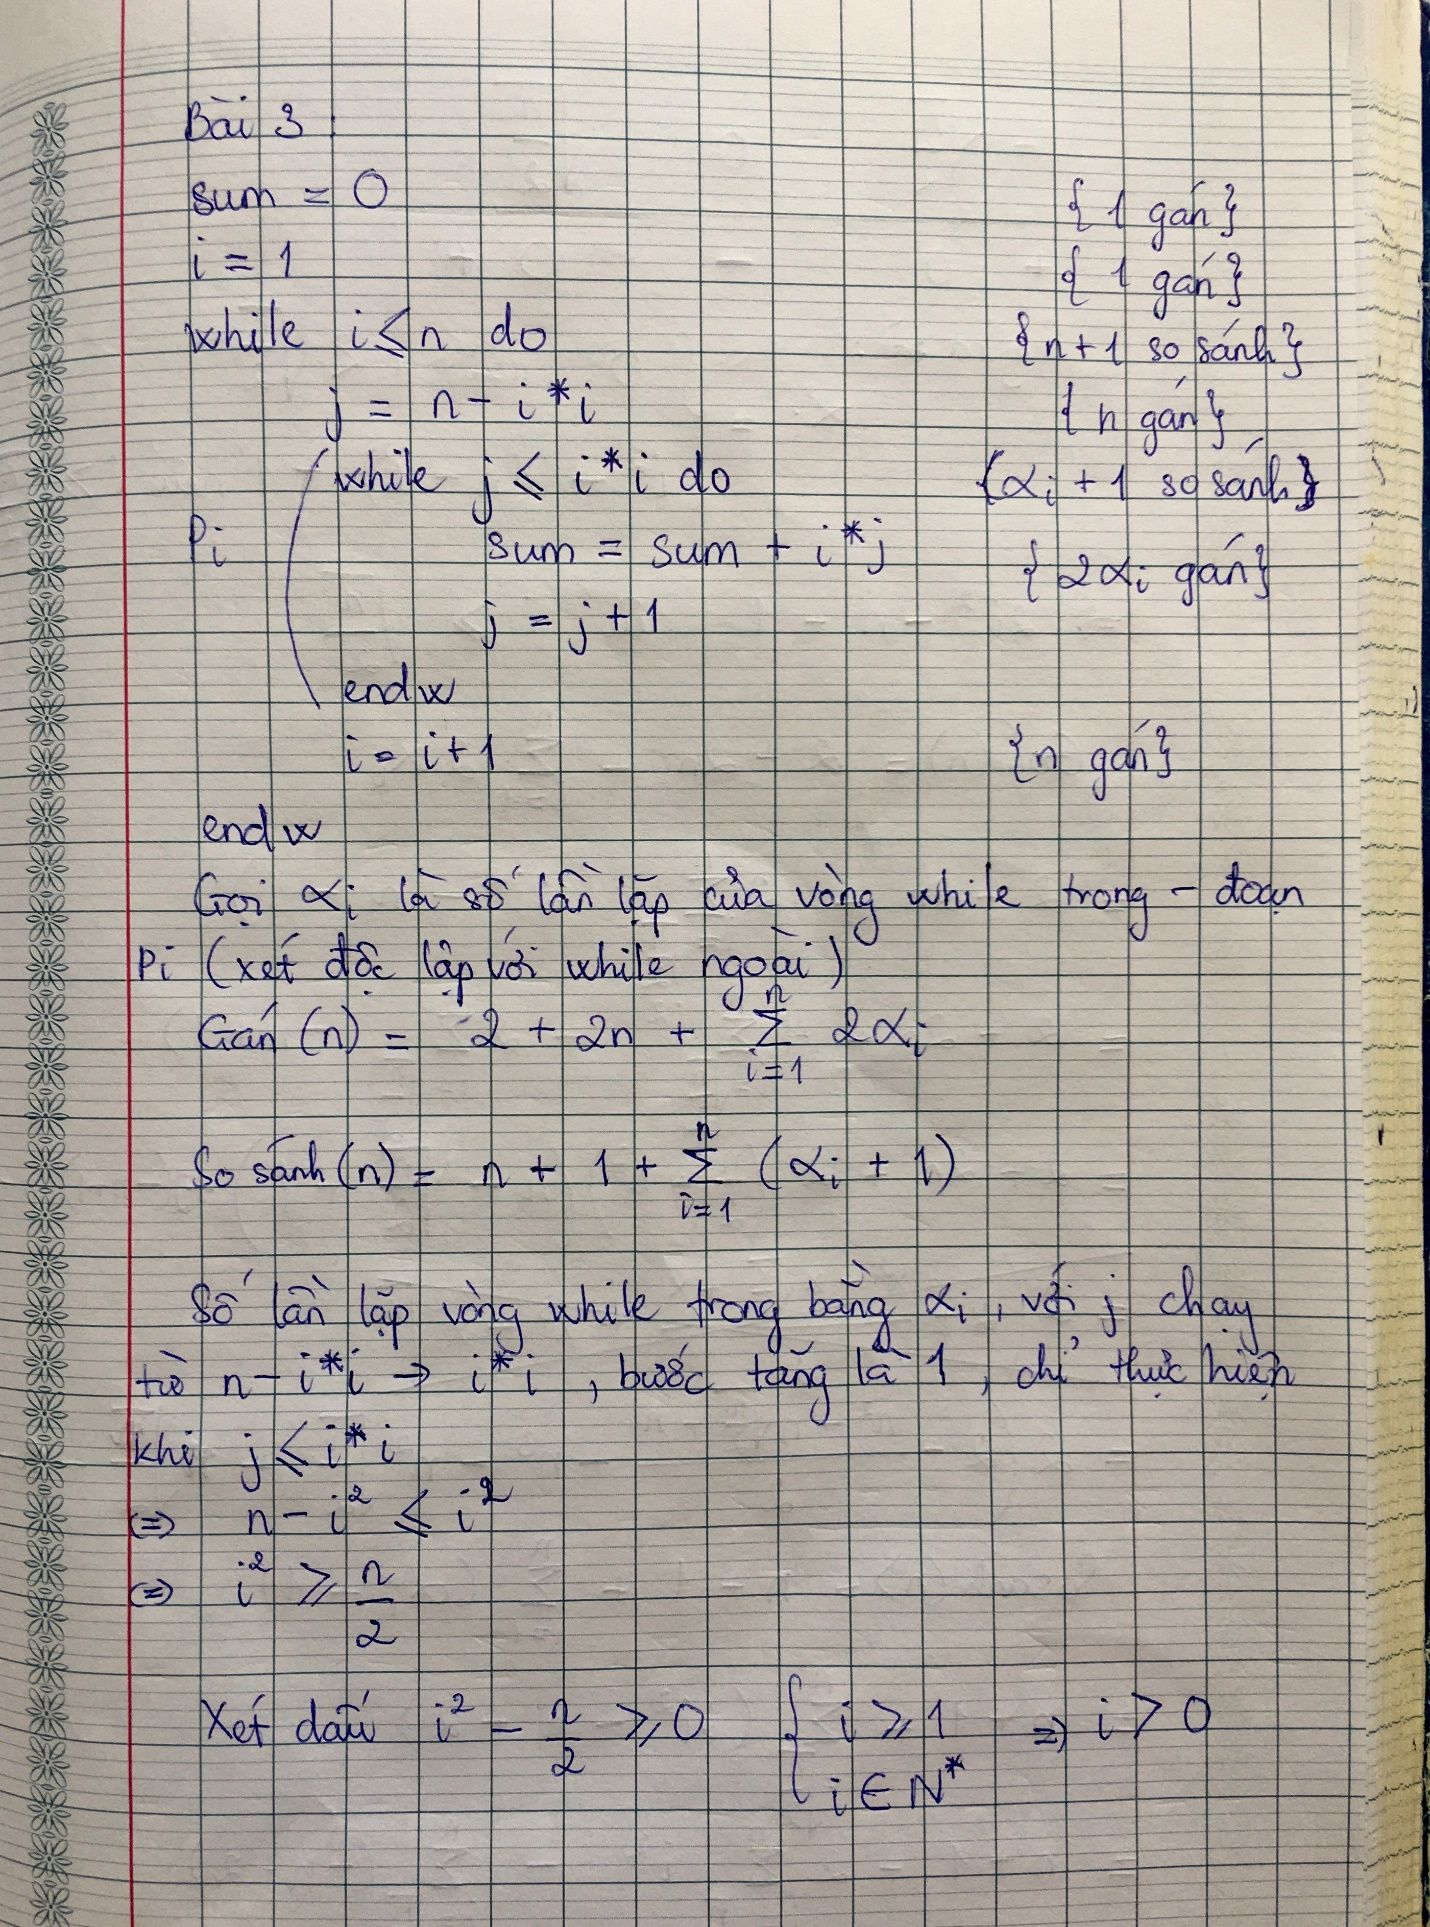 Bài 3
sum = 0 {1 gán}
i = 1 {1 gán}
while i ≤ n do {n+1 so sánh}
j = n - i*i {n gán}
while j ≤ i*i do {αi + 1 so sánh}
Pi sum = sum + i*j {2αi gán}
j = j + 1
endw
i = i + 1 {n gán}
endw
Gọi αi là số lần lặp của vòng while trong - đoạn
Pi (xét độc lập với while ngoài)
Gán (n) = 2 + 2n + Σ_{i=1}^{n} 2αi
So sánh (n) = n + 1 + Σ_{i=1}^{n} (αi + 1)
Số lần lặp vòng while trong bằng αi, với j chạy
từ n - i*i → i*i, bước tăng là 1, chỉ thực hiện
khi j ≤ i*i
⇔ n - i² ≤ i²
⇔ i² ≥ n/2
Xét dấu i² - n/2 ≥ 0 { i ≥ 1 ⇒ i > 0
i ∈ N*